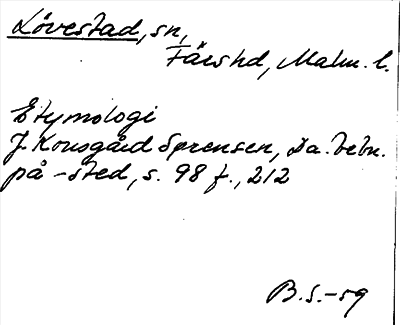 Lövestad, sn,
Färshd, Malm. l.
Etymologi
J. Kousgård Sørensen, Da. bebn.
på -sted, s. 98 f., 212
B.S.-59